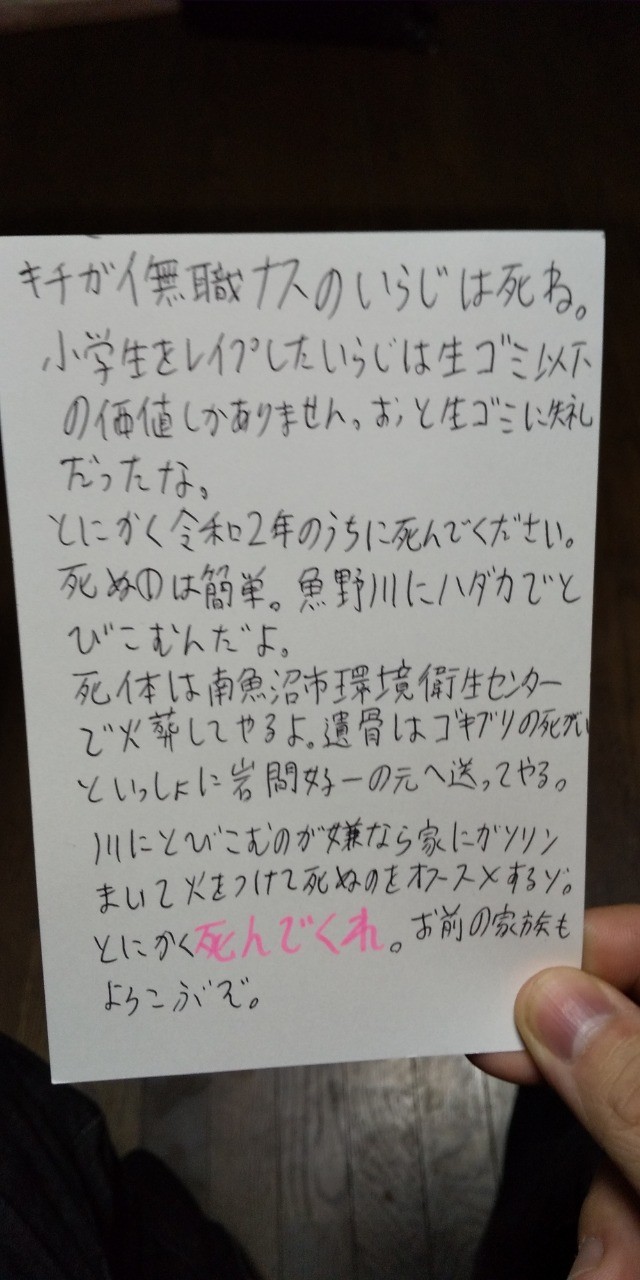 キチガイ無職ナスのいらじは死ね。
小学生をレイプしたいらじは生ゴミ以下
の価値しかありません。おっと生ゴミに失礼
だったな。
とにかく令和2年のうちに死んでください。
死ぬのは簡単。魚野川にハダカでと
びこむんだよ。
死体は南魚沼市環境衛生センター
で火葬してやるよ。遺骨はゴキブリの死がい
といっしょに岩間好一の元へ送ってやる。
川にとびこむのが嫌なら家にガソリン
まいて火をつけて死ぬのをオススメするゾ。
とにかく死んでくれ。お前の家族も
よろこぶぞ。